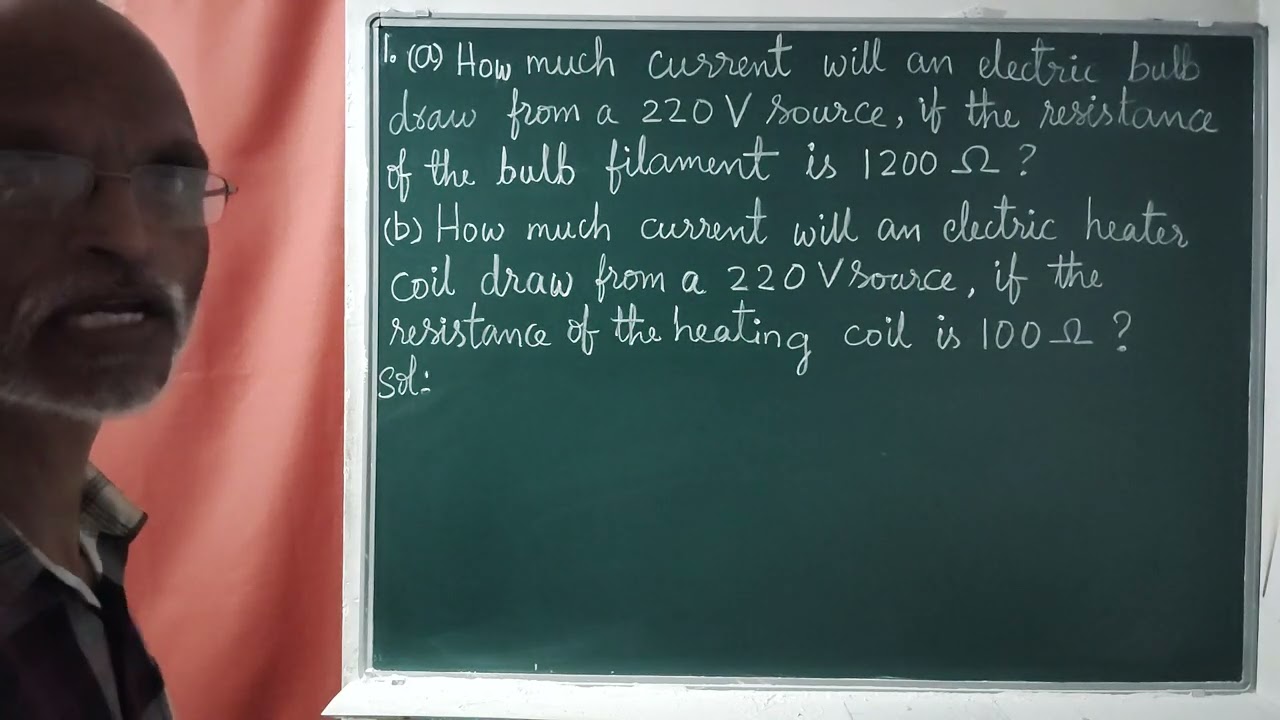 1. (a) How much current will an electric bulb
draw from a 220 V source, if the resistance
of the bulb filament is 1200 Ω ?
(b) How much current will an electric heater
coil draw from a 220 V source, if the
resistance of the heating coil is 100 Ω ?
Sol: